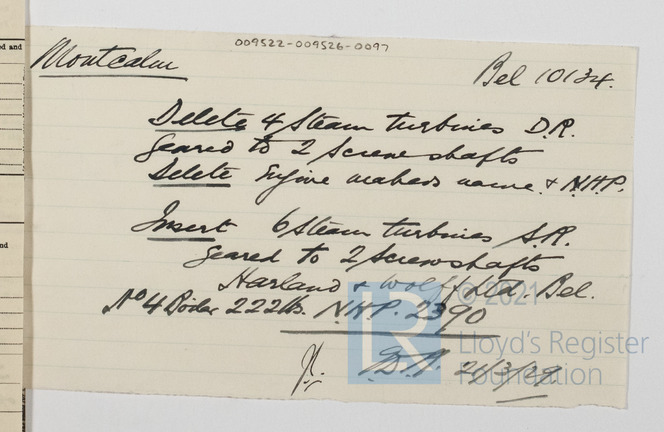 009522-009526-0097
Montcalm
Bel 10134.
Delete 4 Steam turbines D.R.
geared to 2 Screwshafts
Delete Engine makers name & N.H.P.
Insert 6 Steam turbines S.R.
geared to 2 Screwshafts
Harland & Wolff Ltd. Bel.
No 4 Boiler 222 lbs. N.H.P. 2390
21/3/29
© 2021
LR
Lloyd's Register
Foundation
ed and
nd